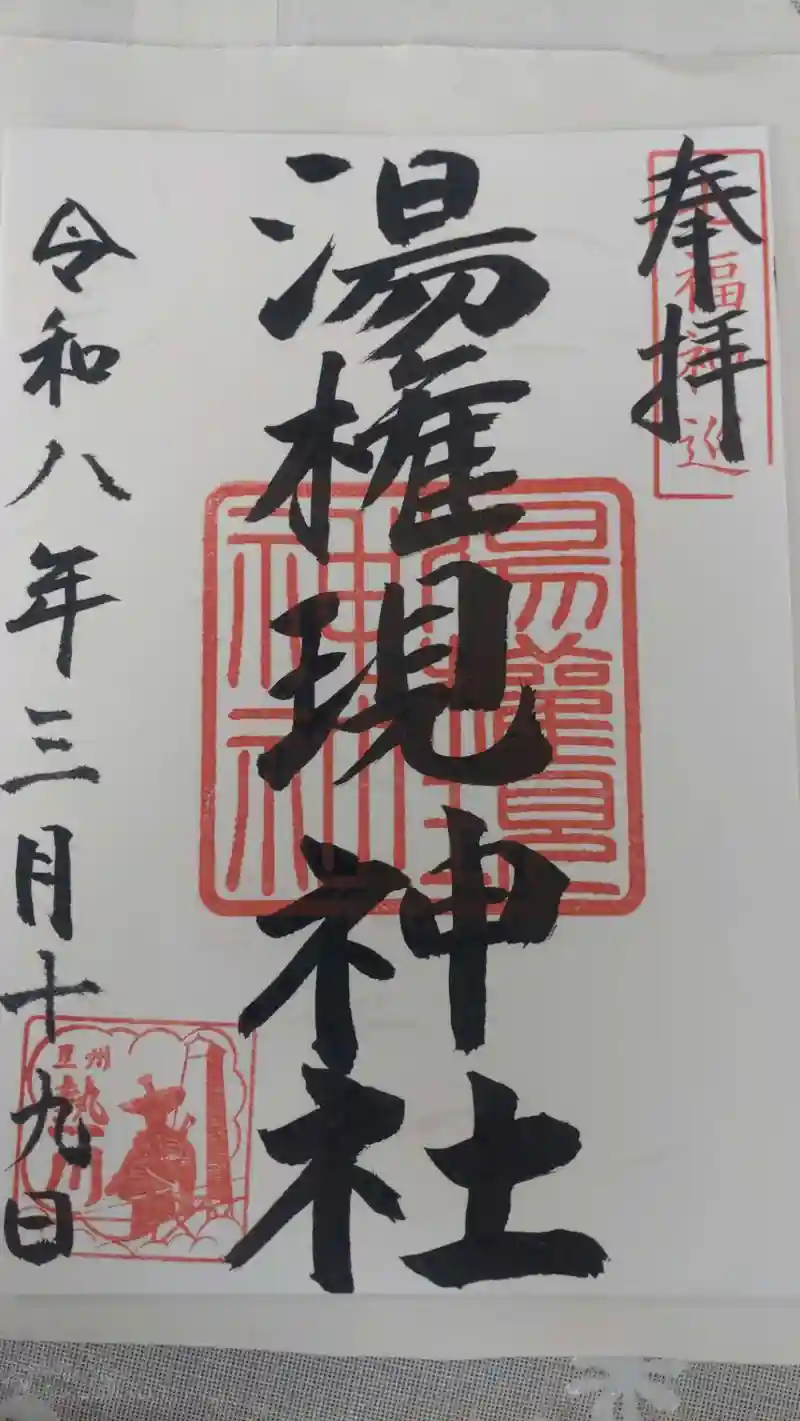 奉拝
福神巡
湯権現神社
湯権現
神社
令和八年三月十九日
豆州
熱川